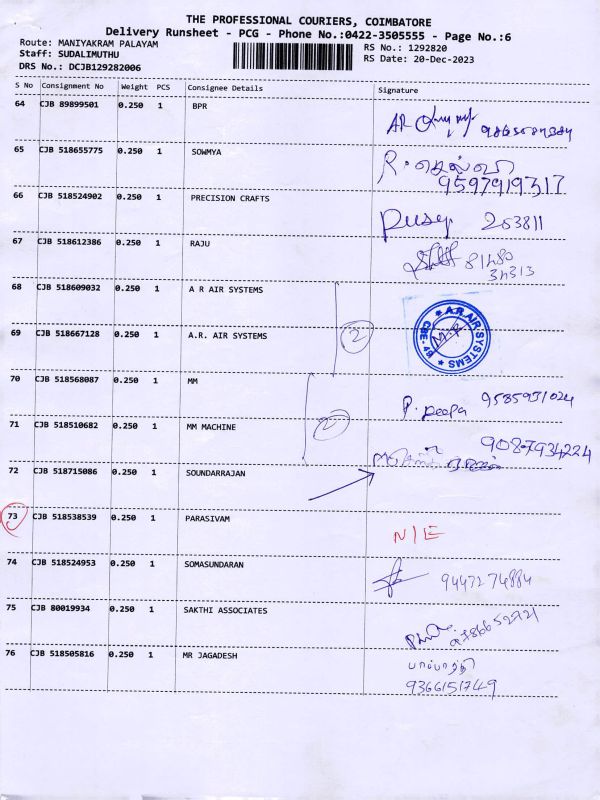 THE PROFESSIONAL COURIERS, COIMBATORE
Delivery Runsheet - PCG - Phone No.:0422-3505555 - Page No.:6
Route: MANIYAKRAM PALAYAM
RS No.: 1292820
Staff: SUDALIMUTHU
RS Date: 20-Dec-2023
DRS No.: DCJB129282006
S No Consignment No Weight PCS Consignee Details Signature
64 CJB 89899501 0.250 1 BPR
AR
65 CJB 518655775 0.250 1 SOWMYA
R. செல்வி
9597919317
66 CJB 518524902 0.250 1 PRECISION CRAFTS
253811
67 CJB 518612386 0.250 1 RAJU
81480
34313
68 CJB 518609032 0.250 1 A R AIR SYSTEMS
69 CJB 518667128 0.250 1 A.R. AIR SYSTEMS
2
★ A.R. AIR SYSTEMS ★ CBE-49
70 CJB 518568087 0.250 1 MM
P. Deepa 9585931024
71 CJB 518510682 0.250 1 MM MACHINE
2
9087934224
72 CJB 518715086 0.250 1 SOUNDARRAJAN
73 CJB 518538539 0.250 1 PARASIVAM
N/E
74 CJB 518524953 0.250 1 SOMASUNDARAN
9447274884
75 CJB 80019934 0.250 1 SAKTHI ASSOCIATES
9786652721
76 CJB 518505816 0.250 1 MR JAGADESH
பாப்பாத்தி
9366151749